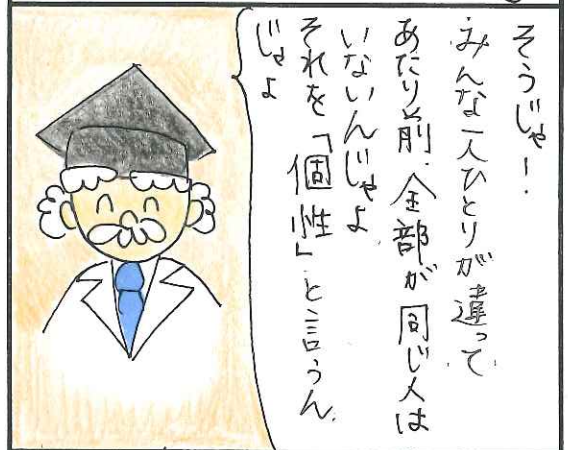 そうじゃー!
みんな一人ひとりが違って
あたり前.全部が同じ人は
いないんじゃよ
それを「個性」と言うん
じゃよ